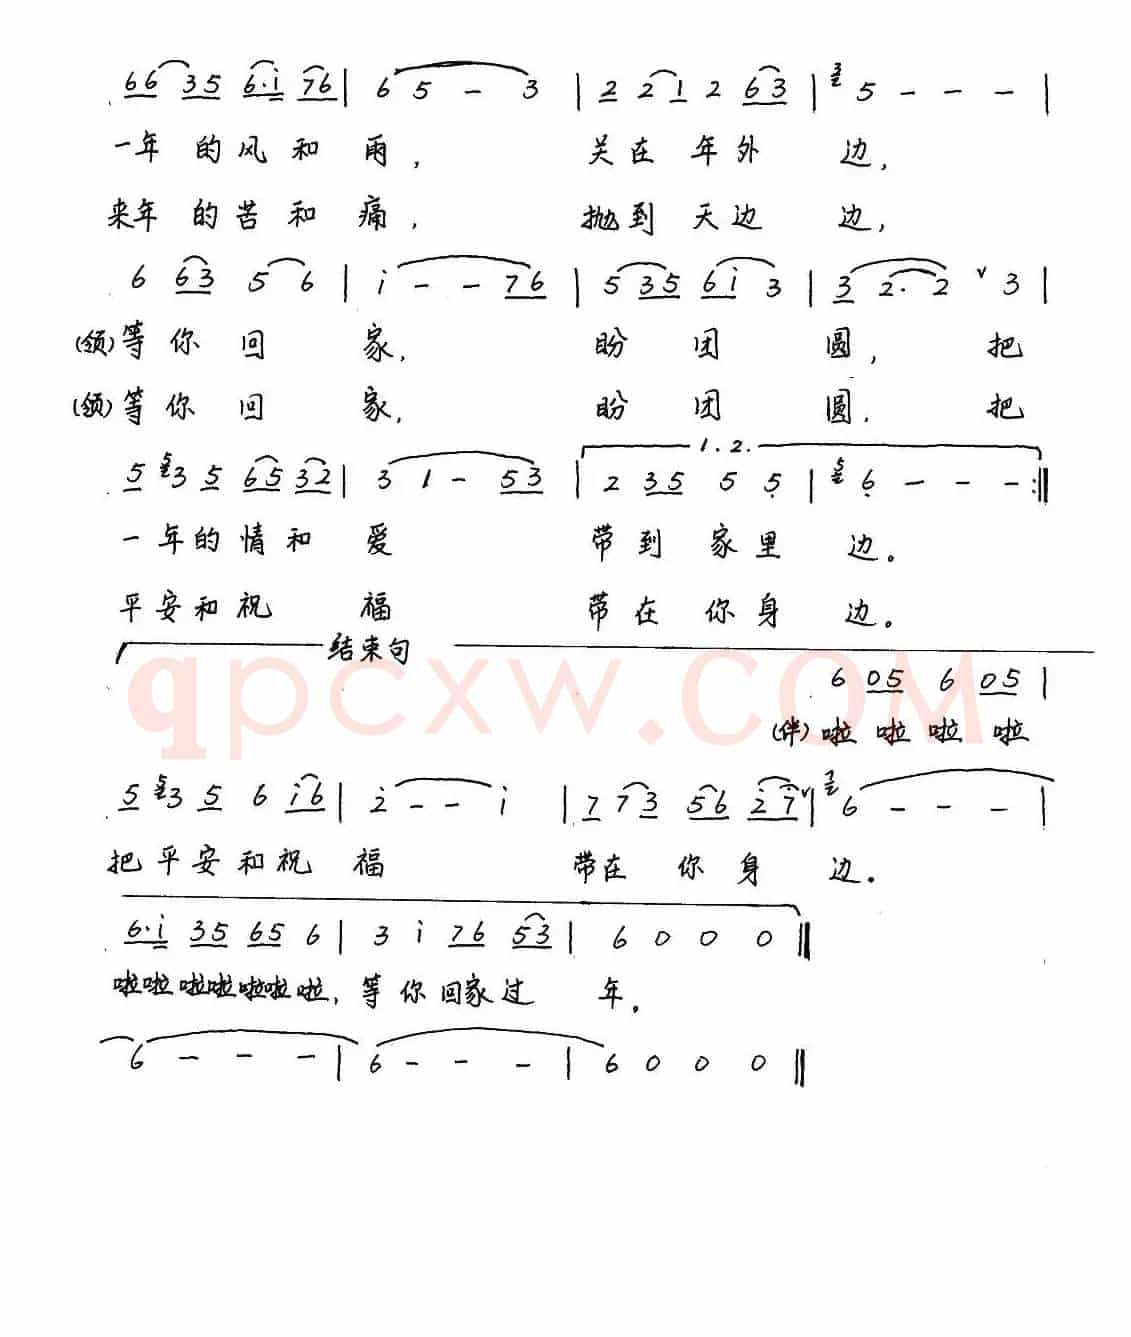 66 35 6·i 76 | 6 5 - 3 | 2 2 1 2 63 | 3 5 - - - |
一年 的风和 雨， 关在 年外 边，
来年 的苦和 痛， 抛到 天边 边，
6 63 5 6 | i - - 76 | 5 35 6i 3 | 3 2· 2 ∨ 3 |
(领)等你 回 家， 盼 团 圆， 把
(领)等你 回 家， 盼 团 圆， 把
1.2.
5 5 3 5 65 32 | 3 1 - 53 | 2 35 5 5 | 5 6 - - - :‖
一年的情和 爱 带到 家里 边。
平安和祝 福 带在 你身 边。
结束句
6 05 6 05 |
(伴)啦 啦 啦 啦
5 5 3 5 6 i6 | 2 - - i | 7 73 56 27 ∨ | 7 6 - - - |
把平安和祝 福 带在 你身 边。
6·i 35 65 6 | 3 i 76 53 | 6 0 0 0 ‖
啦啦啦啦啦啦啦，等你回家过 年。
6 - - - | 6 - - - | 6 0 0 0 ‖
qpcxw.com